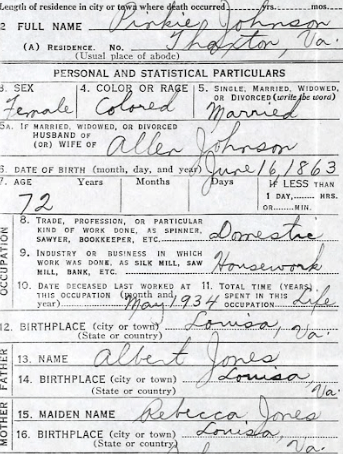 Length of residence in city or town where death occurred yrs. mos.
2 FULL NAME Pinkie Johnson
(A) RESIDENCE. No. Thaxton, Va.
(Usual place of abode)
PERSONAL AND STATISTICAL PARTICULARS
3. SEX 4. COLOR OR RACE 5. SINGLE, MARRIED, WIDOWED,
OR DIVORCED (write the word)
Female Colored Married
5A. IF MARRIED, WIDOWED, OR DIVORCED
HUSBAND OF
(OR) WIFE OF Allen Johnson
6. DATE OF BIRTH (month, day, and year) June 16, 1863
7. AGE Years Months Days IF LESS THAN
1 DAY,...... HRS.
OR...... MIN.
72
OCCUPATION
8. TRADE, PROFESSION, OR PARTICULAR
KIND OF WORK DONE, AS SPINNER,
SAWYER, BOOKKEEPER, ETC. Domestic
9. INDUSTRY OR BUSINESS IN WHICH
WORK WAS DONE, AS SILK MILL, SAW
MILL, BANK, ETC. Housework
10. DATE DECEASED LAST WORKED AT 11. TOTAL TIME (YEARS)
THIS OCCUPATION (month and SPENT IN THIS
year) May 1934 OCCUPATION Life
12. BIRTHPLACE (city or town) Louisa,
(State or country) Va.
FATHER
13. NAME Albert Jones
14. BIRTHPLACE (city or town) Louisa,
(State or country) Va.
MOTHER
15. MAIDEN NAME Rebecca Jones
16. BIRTHPLACE (city or town) Louisa,
(State or country) Va.